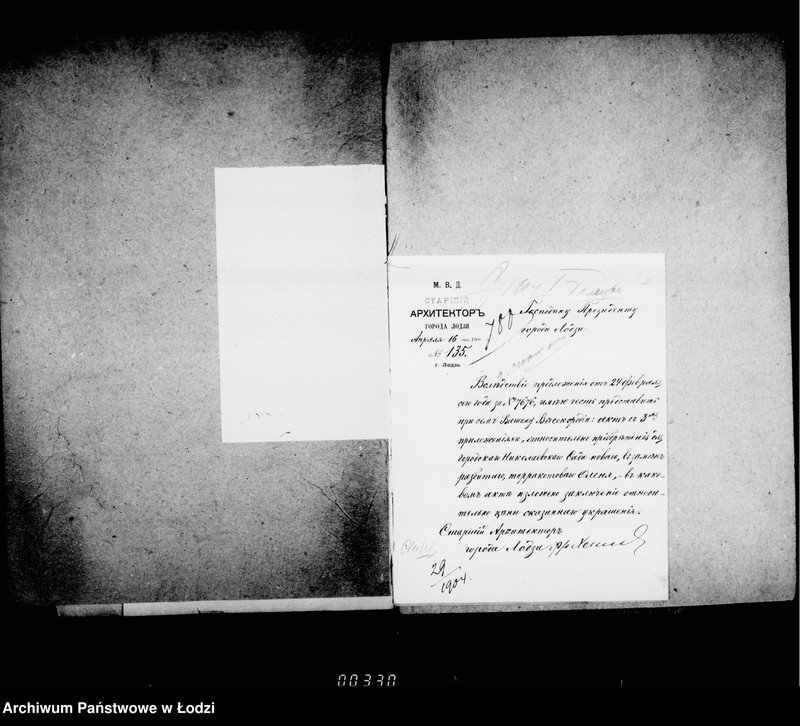 М. В. Д.
СТАРШІЙ
АРХИТЕКТОРЪ
ГОРОДА ЛОДЗИ
Апрѣля 16
№ 135.
г. Лодзь.
788
Господину Президенту
города Лодзи
Вслѣдствіе предложенія отъ 24 февраля
сего года за № 7676, имѣю честь представить
при семъ Вашему Высокородію: актъ съ 3
приложеніями, относительно пріобрѣтенія для
городскаго Николаевскаго Сада новаго, взамѣнъ
разбитаго, терракотоваго оленя, - въ како-
вомъ актѣ изложено заключеніе относи-
тельно цѣны сказаннаго украшенія.
Старшій Архитекторъ
города Лодзи
29/1904.
00330
Archiwum Państwowe w Łodzi